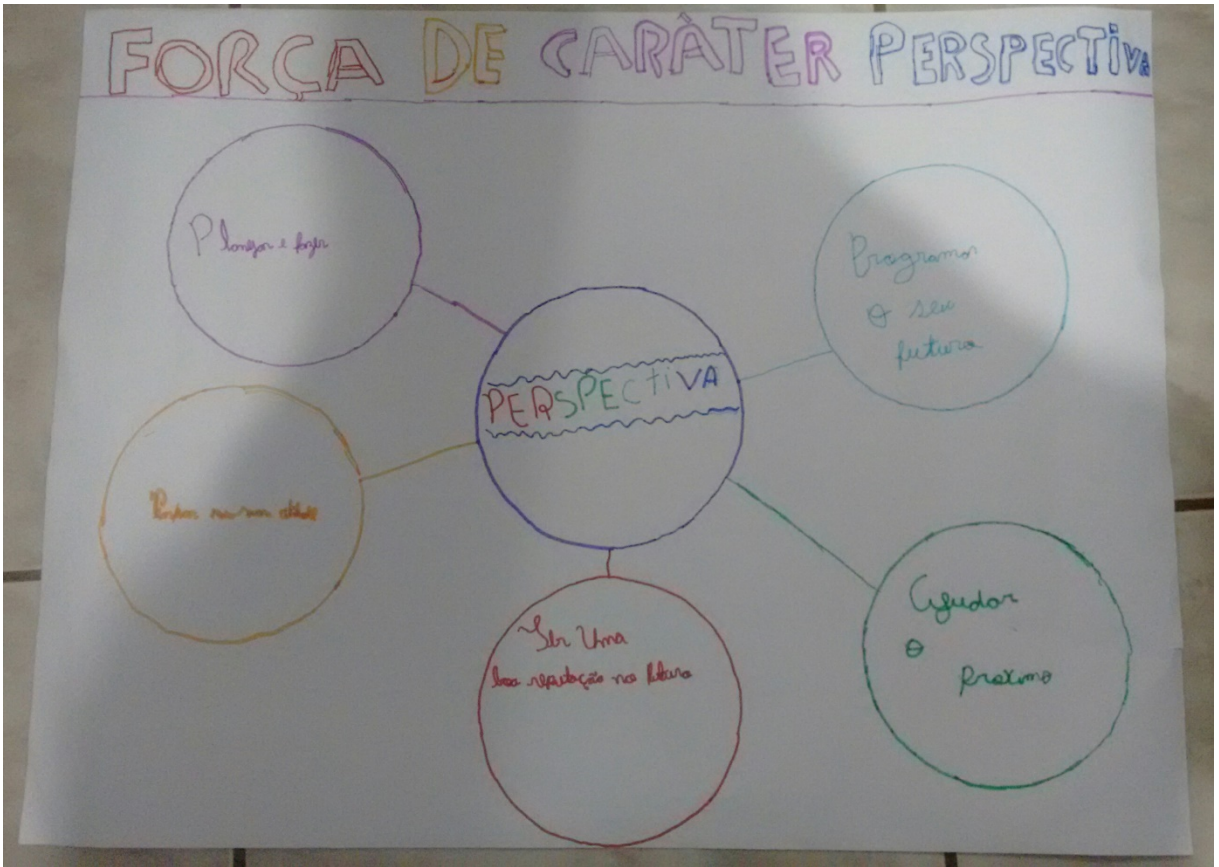 FORÇA DE CARÀTER PERSPECTIVA
Planejar e fazer
Programar
o seu
futuro
PERSPECTIVA
Pensar na sua
Ter Uma
boa reputação no futuro
Ajudar
o
Proximo